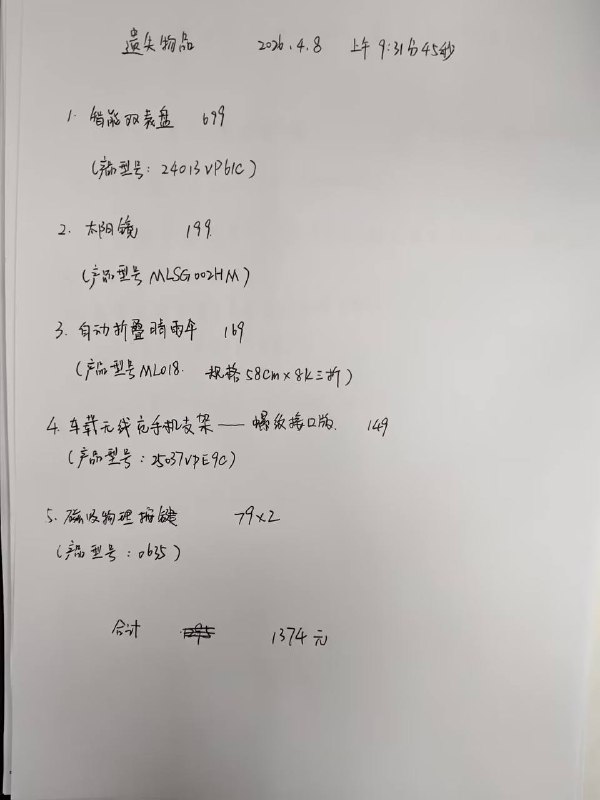 遗失物品 2026.4.8 上午 9:31分45秒
1. 智能双表盘 699
(产品型号: 24013VP61C)
2. 太阳镜 199
(产品型号 MLSG002HM)
3. 自动折叠晴雨伞 169
(产品型号ML018. 规格58cm×8K三折)
4. 车载无线充手机支架——螺纹接口版. 149
(产品型号: 25037VPE9C)
5. 磁吸物理按键 79×2
(产品型号: 0635)
合计 1374元